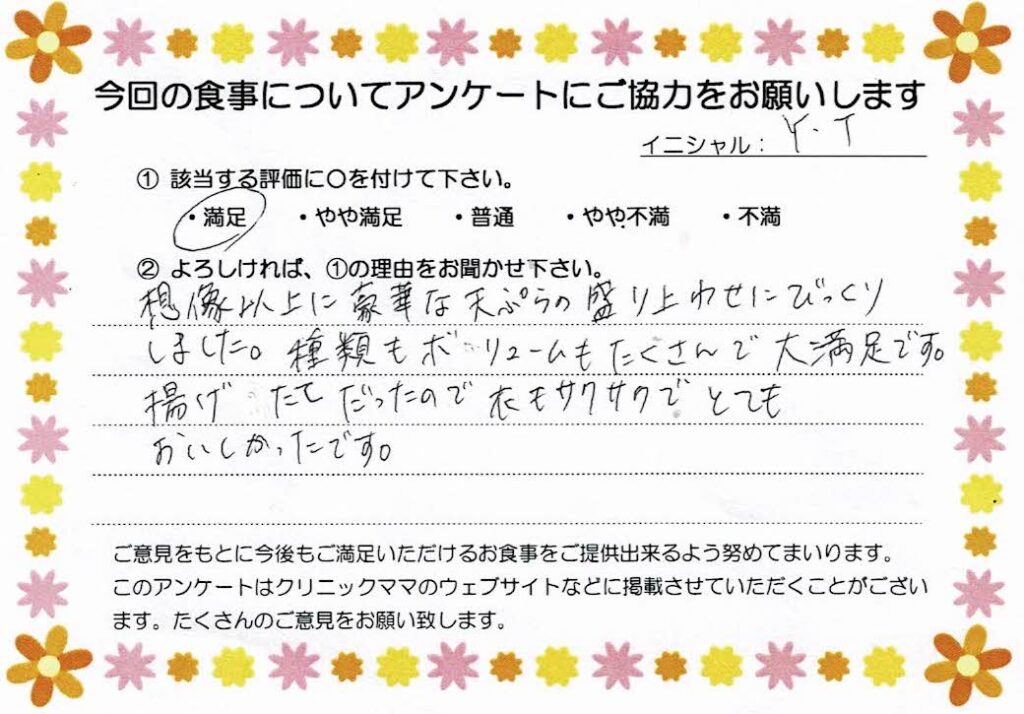 今回の食事についてアンケートにご協力をお願いします
イニシャル： Y.T
① 該当する評価に〇を付けて下さい。
・満足 ・やや満足 ・普通 ・やや不満 ・不満
② よろしければ、①の理由をお聞かせ下さい。
想像以上に豪華な天ぷらの盛り上わせにびっくり
しました。種類もボリュームもたくさんで大満足です。
揚げたてだったので衣もサクサクでとても
おいしかったです。
ご意見をもとに今後もご満足いただけるお食事をご提供出来るよう努めてまいります。
このアンケートはクリニックママのウェブサイトなどに掲載させていただくことがござい
ます。たくさんのご意見をお願い致します。